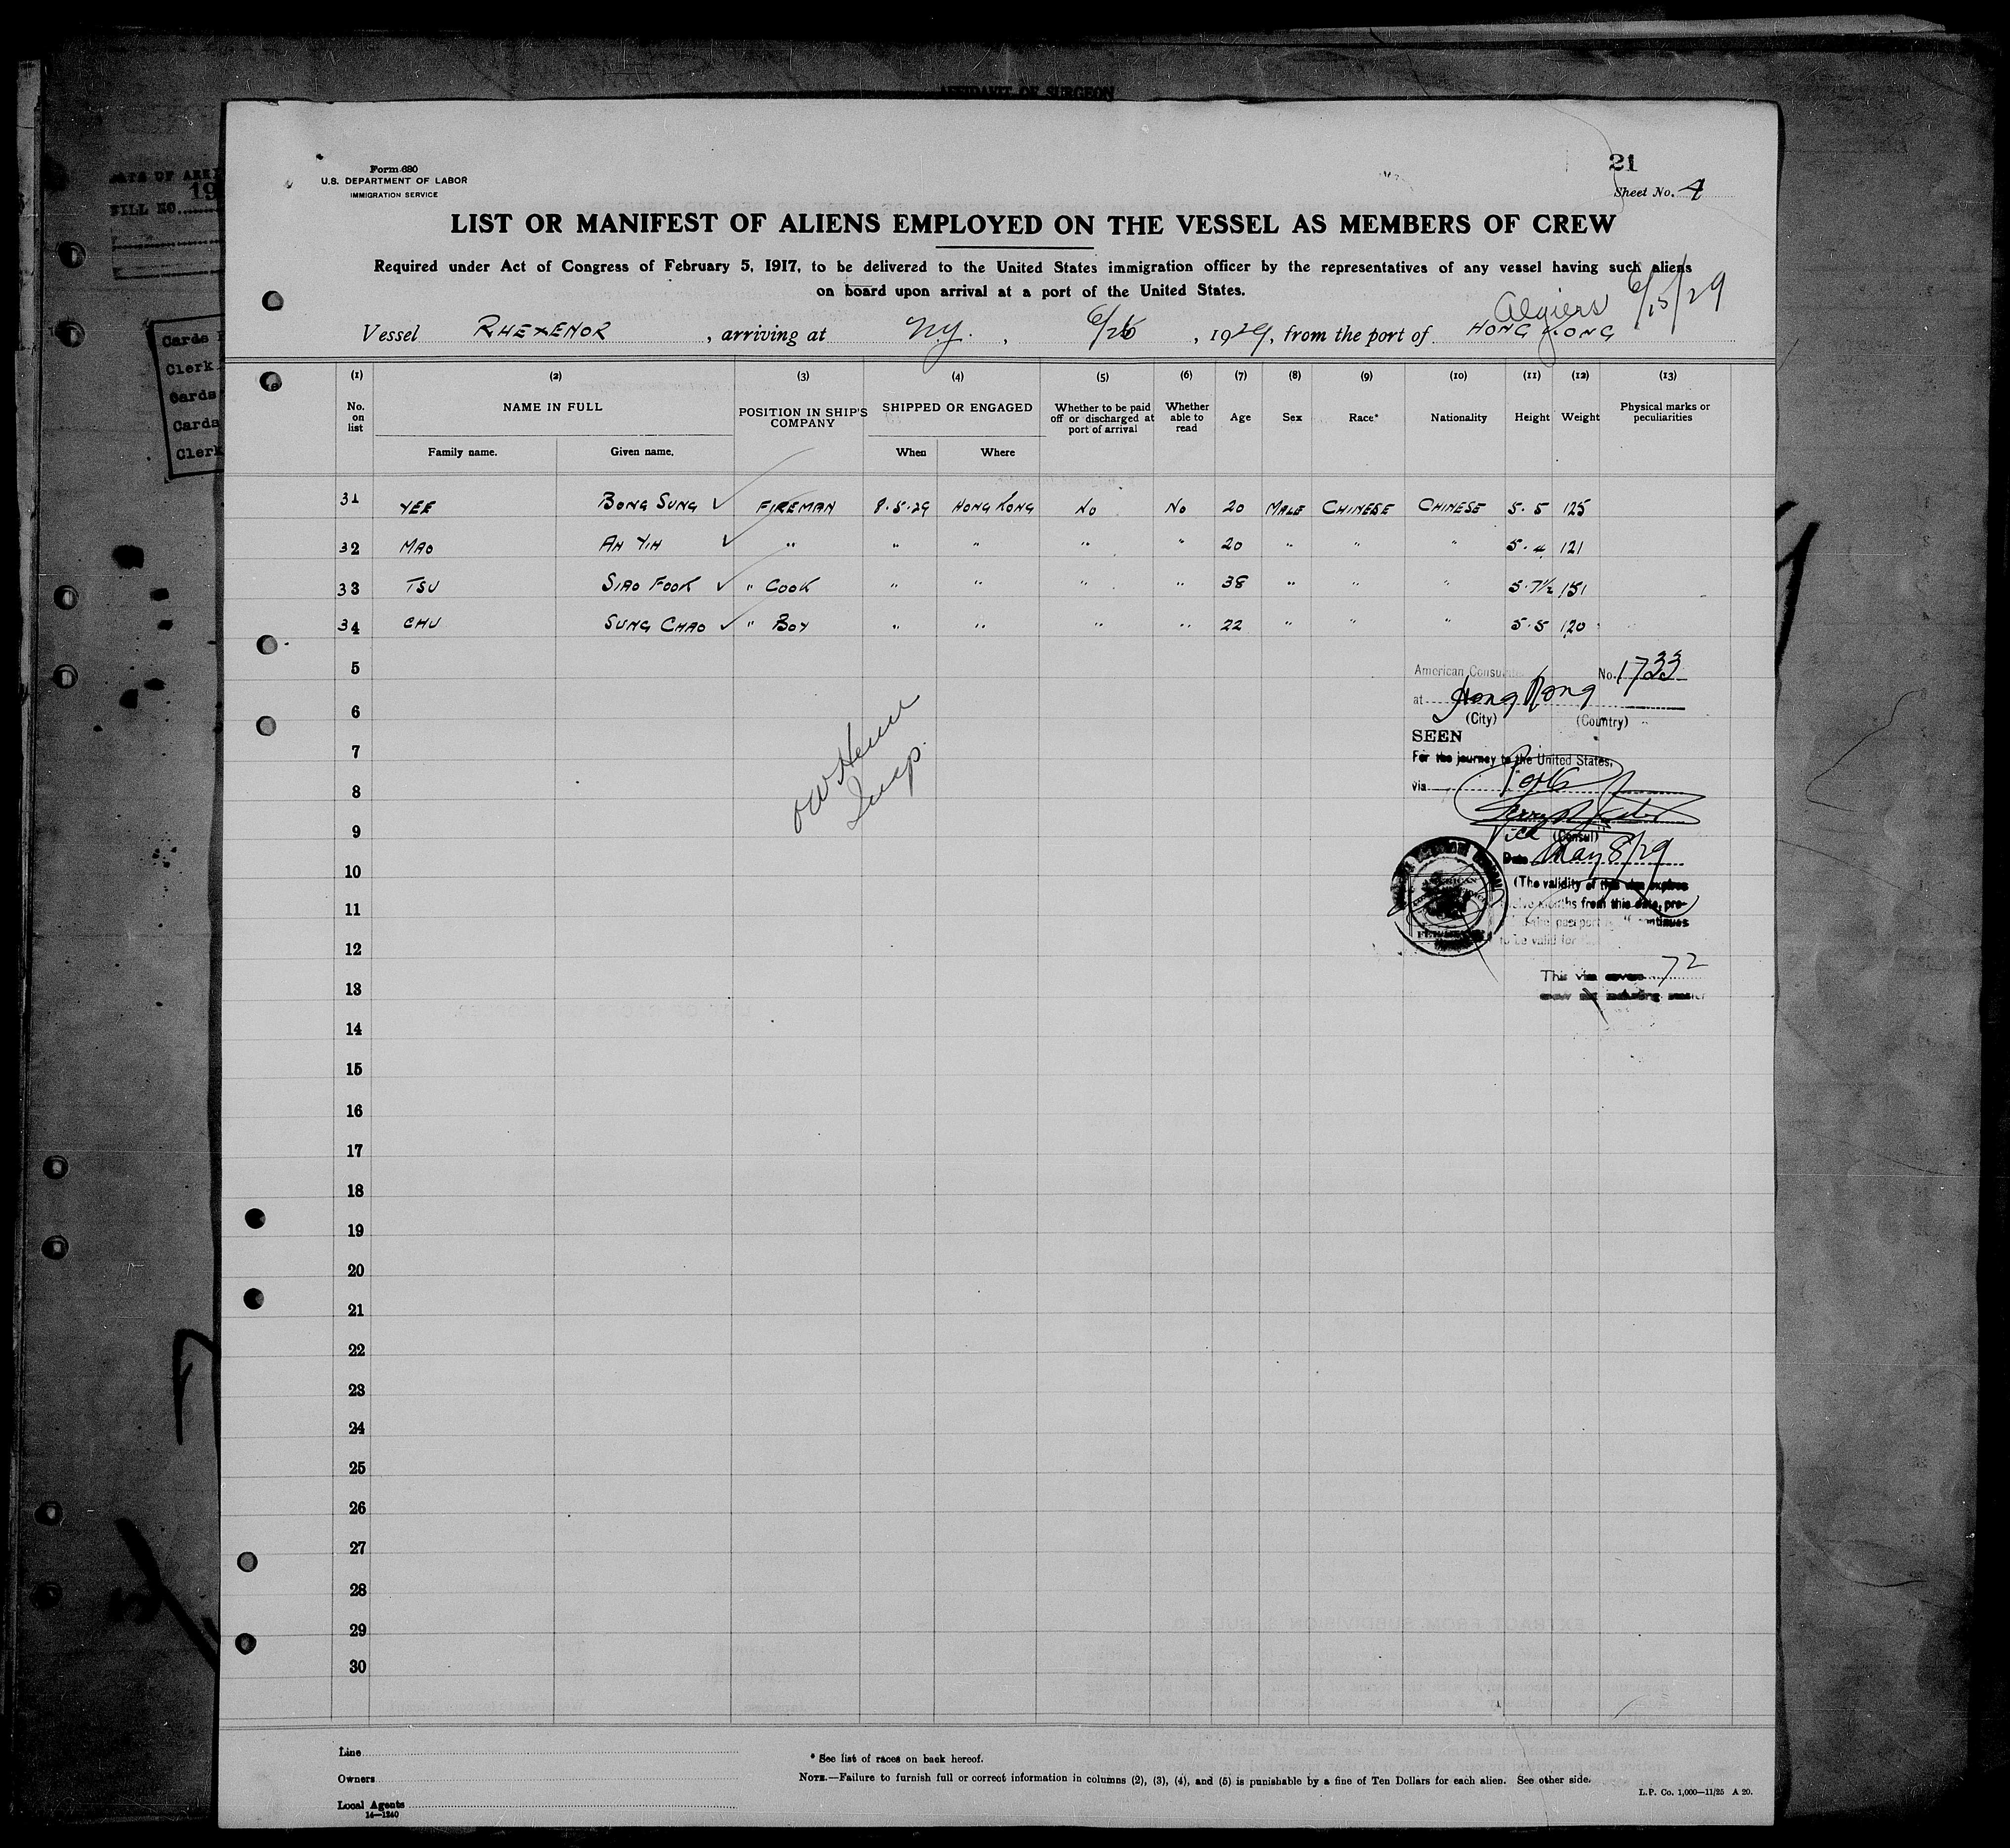 AFFIDAVIT OF SURGEON
Form 680
U.S. DEPARTMENT OF LABOR
IMMIGRATION SERVICE
21
Sheet No. 4
LIST OR MANIFEST OF ALIENS EMPLOYED ON THE VESSEL AS MEMBERS OF CREW
Required under Act of Congress of February 5, 1917, to be delivered to the United States immigration officer by the representatives of any vessel having such aliens
on board upon arrival at a port of the United States.
Algiers 6/15/29
Vessel RHEXENOR, arriving at N.Y., 6/26, 1929, from the port of HONG KONG
(1) (2) (3) (4) (5) (6) (7) (8) (9) (10) (11) (12) (13)
No. on list NAME IN FULL POSITION IN SHIP'S COMPANY SHIPPED OR ENGAGED Whether to be paid off or discharged at port of arrival Whether able to read Age Sex Race* Nationality Height Weight Physical marks or peculiarities
Family name. Given name. When Where
31 YEE BONG SUNG ✓ FIREMAN 8.5.29 HONG KONG NO NO 20 MALE CHINESE CHINESE 5.5 125
32 MAO AH YIH ✓ " " " " " 20 " " " 5.4 121
33 TSU SIAO FOOK ✓ " COOK " " " " 38 " " " 5.7½ 151
34 CHU SUNG CHAO ✓ " BOY " " " " 22 " " " 5.5 120
5
6
7
8
9
10
11
12
13
14
15
16
17
18
19
20
21
22
23
24
25
26
27
28
29
30
Insp.
American Consulate No. 1733
at Hong Kong
(City) (Country)
SEEN
For the journey to the United States,
via
Vice (Consul)
Date May 8/29
(The validity of this visa expires
twelve months from this date, pro-
continues
to be valid for
This visa covers 72
crew not including master
Line
Owners
Local Agents
14—1240
* See list of races on back hereof.
NOTE.—Failure to furnish full or correct information in columns (2), (3), (4), and (5) is punishable by a fine of Ten Dollars for each alien. See other side.
L.P. Co. 1,000—11/25 A 20.